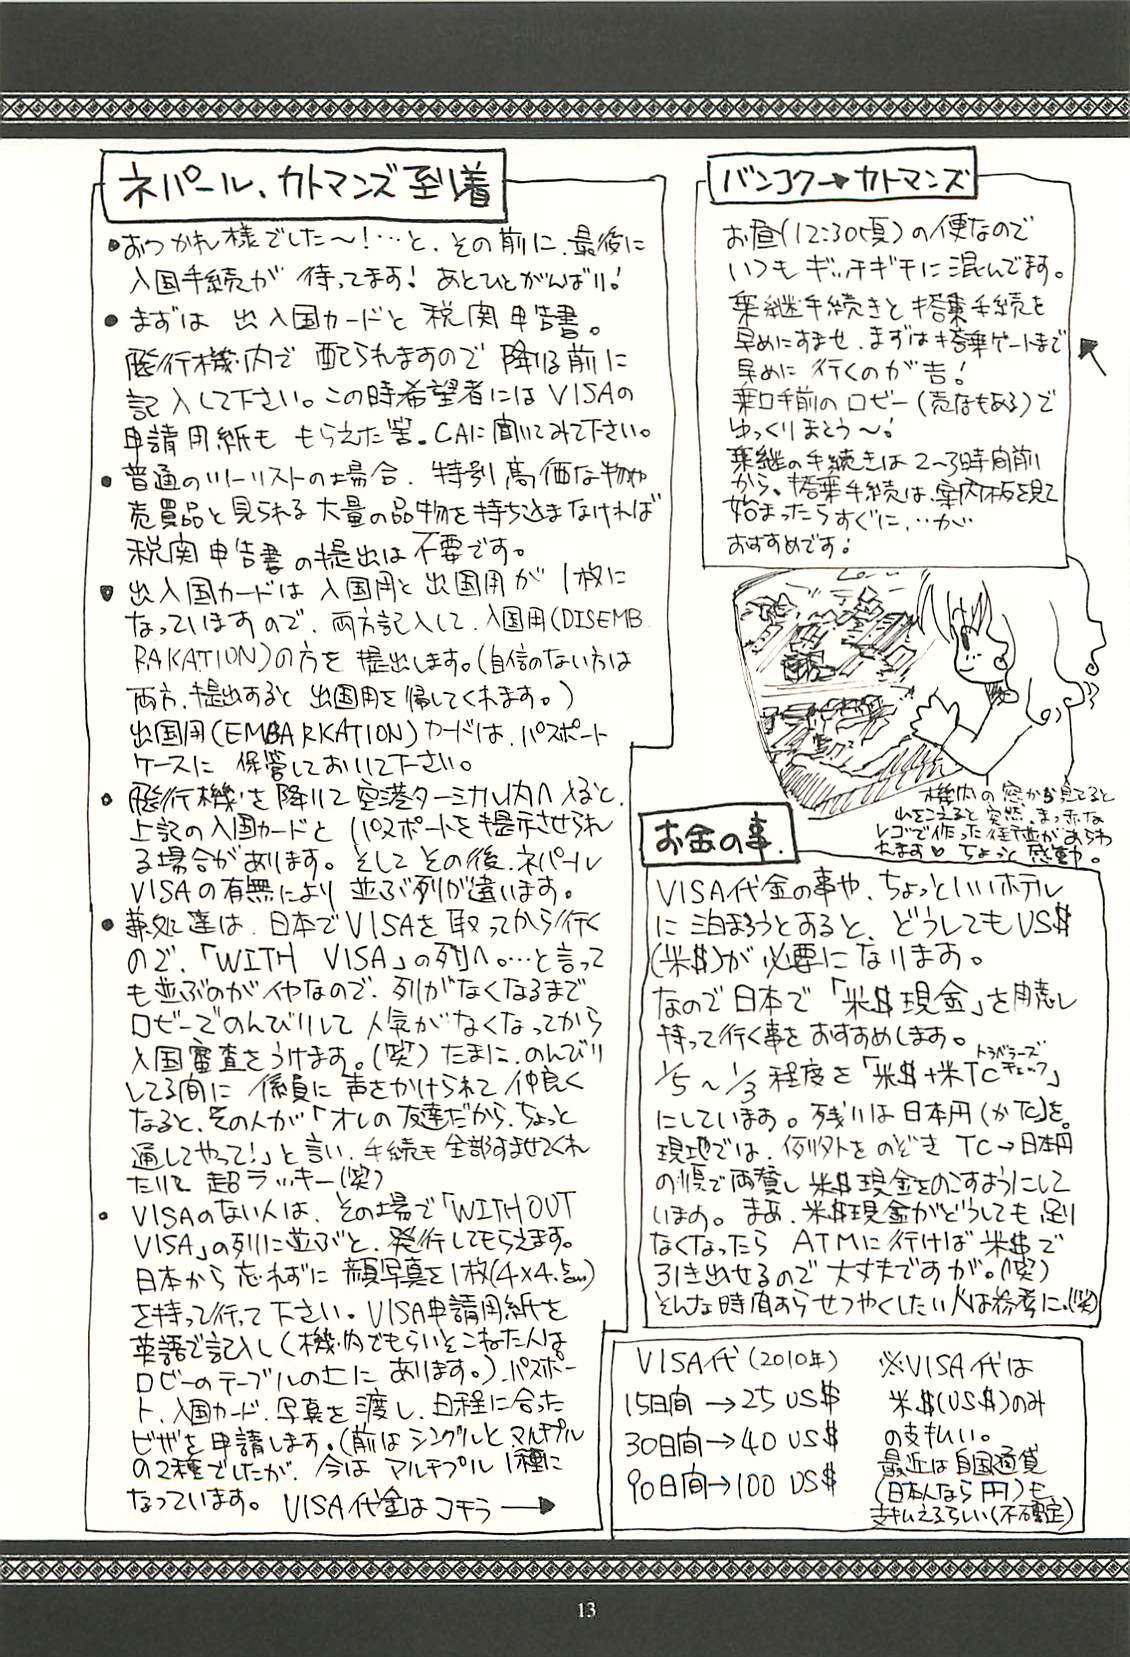 バンコク→カトマンズ
お昼(12:30頃)の便なので
いつもギッチギチに混んでます。
乗継手続きと搭乗手続を
早めにすませ、まずは搭乗ゲートまで
早めに行くのが吉!
乗口手前のロビー(売店もある)で
ゆっくりまとう〜!
乗継の手続きは2〜3時間前
から、搭乗手続は、案内板を見て
始まったらすぐに、…が
おすすめです!
機内の窓から見てると
山をこえると突然、まっ赤な
レゴで作った街並があらわ
れます♡ ちょっと感動。
ネパール、カトマンズ到着
●おつかれ様でした〜!…と、その前に、最後に
入国手続が待ってます!あとひとがんばり!
●まずは 出入国カードと 税関申告書。
飛行機内で配られますので降りる前に
記入して下さい。この時希望者にはVISAの
申請用紙も もらえた筈。CAに聞いてみて下さい。
●普通のツーリストの場合、特別高価な物や
売買品と見られる大量の品物を持ち込まなければ
税関申告書の提出は不要です。
●出入国カードは入国用と出国用が1枚に
なっていますので、両方記入して、入国用(DISEMB
RAKATION)の方を提出します。(自信のない方は
両方、提出すると出国用を帰してくれます。)
出国用(EMBARKATION)カードは、パスポート
ケースに保管しておいて下さい。
●飛行機を降りて空港ターミナル内へ入ると、
上記の入国カードとパスポートを提示させられ
る場合があります。そしてその後、ネパール
VISAの有無により並ぶ列が違います。
●兼処達は、日本でVISAを取ってから行く
ので、「WITH VISA」の列へ。…と言って
も並ぶのがイヤなので、列がなくなるまで
ロビーでのんびりして人気がなくなってから
入国審査をうけます。(笑)たまに、のんびり
してる間に 係員に声をかけられて仲良く
なると、その人が「オレの友達だから、ちょっと
通してやって!」と言い、手続も全部すませてくれ
たりで 超ラッキー(笑)
●VISAのない人は、その場で「WITHOUT
VISA」の列に並ぶと、発行してもらえます。
日本から忘れずに顔写真を1枚(4×4.5cm)
を持って行って下さい。VISA申請用紙を
英語で記入し(機内でもらいそこねた人は
ロビーのテーブルの上にあります。)、パスポー
ト、入国カード、写真を渡し、日程に合った
ビザを申請します。(前はシングルとマルチプル
の2種でしたが、今はマルチプル1種に
なっています。 VISA代金はコチラ→
お金の事。
VISA代金の事や、ちょっといいホテル
に泊まろうとすると、どうしてもUS$
(米$)が必要になります。
なので日本で「米$現金」を用意し
持って行く事をおすすめします。
1/5〜1/3程度を「米$+米TC トラベラーズチェック」
にしています。残りは日本円(かTC)を。
現地では、例外をのぞきTC→日本円
の順で両替し米$現金をのこすようにして
います。まあ、米$現金がどうしても足り
なくなったらATMに行けば米$で
引き出せるので大丈夫ですが。(笑)
そんな時間あらせつやくしたい人は参考に。(笑)
VISA代(2010年)
15日間→25 US$
30日間→40 US$
90日間→100 US$
※VISA代は
米$(US$)のみ
の支払い。
最近は自国通貨
(日本人なら円)も
支払えるらしい(不確定)
13